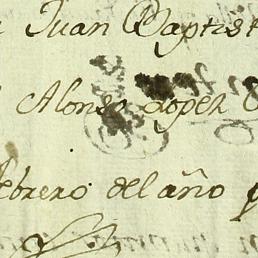 Juan Baptist
Alonso Lopez
febrero del año